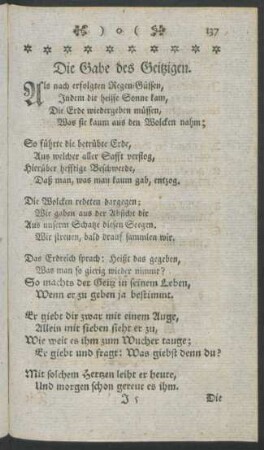 ) o ( 137
Die Gabe des Geitzigen.
Als nach erfolgten Regen-Güssen,
Indem die heisse Sonne kam,
Die Erde wiedergeben müssen,
Was sie kaum aus den Wolcken nahm;
So führte die betrübte Erde,
Aus welcher aller Safft verflog,
Hierüber hefftige Beschwerde,
Daß man, was man kaum gab, entzog.
Die Wolcken redeten dargegen:
Wir gaben aus der Absicht dir
Aus unserm Schatze diesen Seegen,
Wir streuen, bald drauf sammlen wir.
Das Erdreich sprach: Heißt das gegeben,
Was man so gierig wieder nimmt?
So machts der Geitz in seinem Leben,
Wenn er zu geben ja bestimmt.
Er giebt dir zwar mit einem Auge,
Allein mit sieben sieht er zu,
Wie weit es ihm zum Wucher tauge;
Er giebt und fragt: Was giebst denn du?
Mit solchem Hertzen leiht er heute,
Und morgen schon gereut es ihm.
J 5 Die